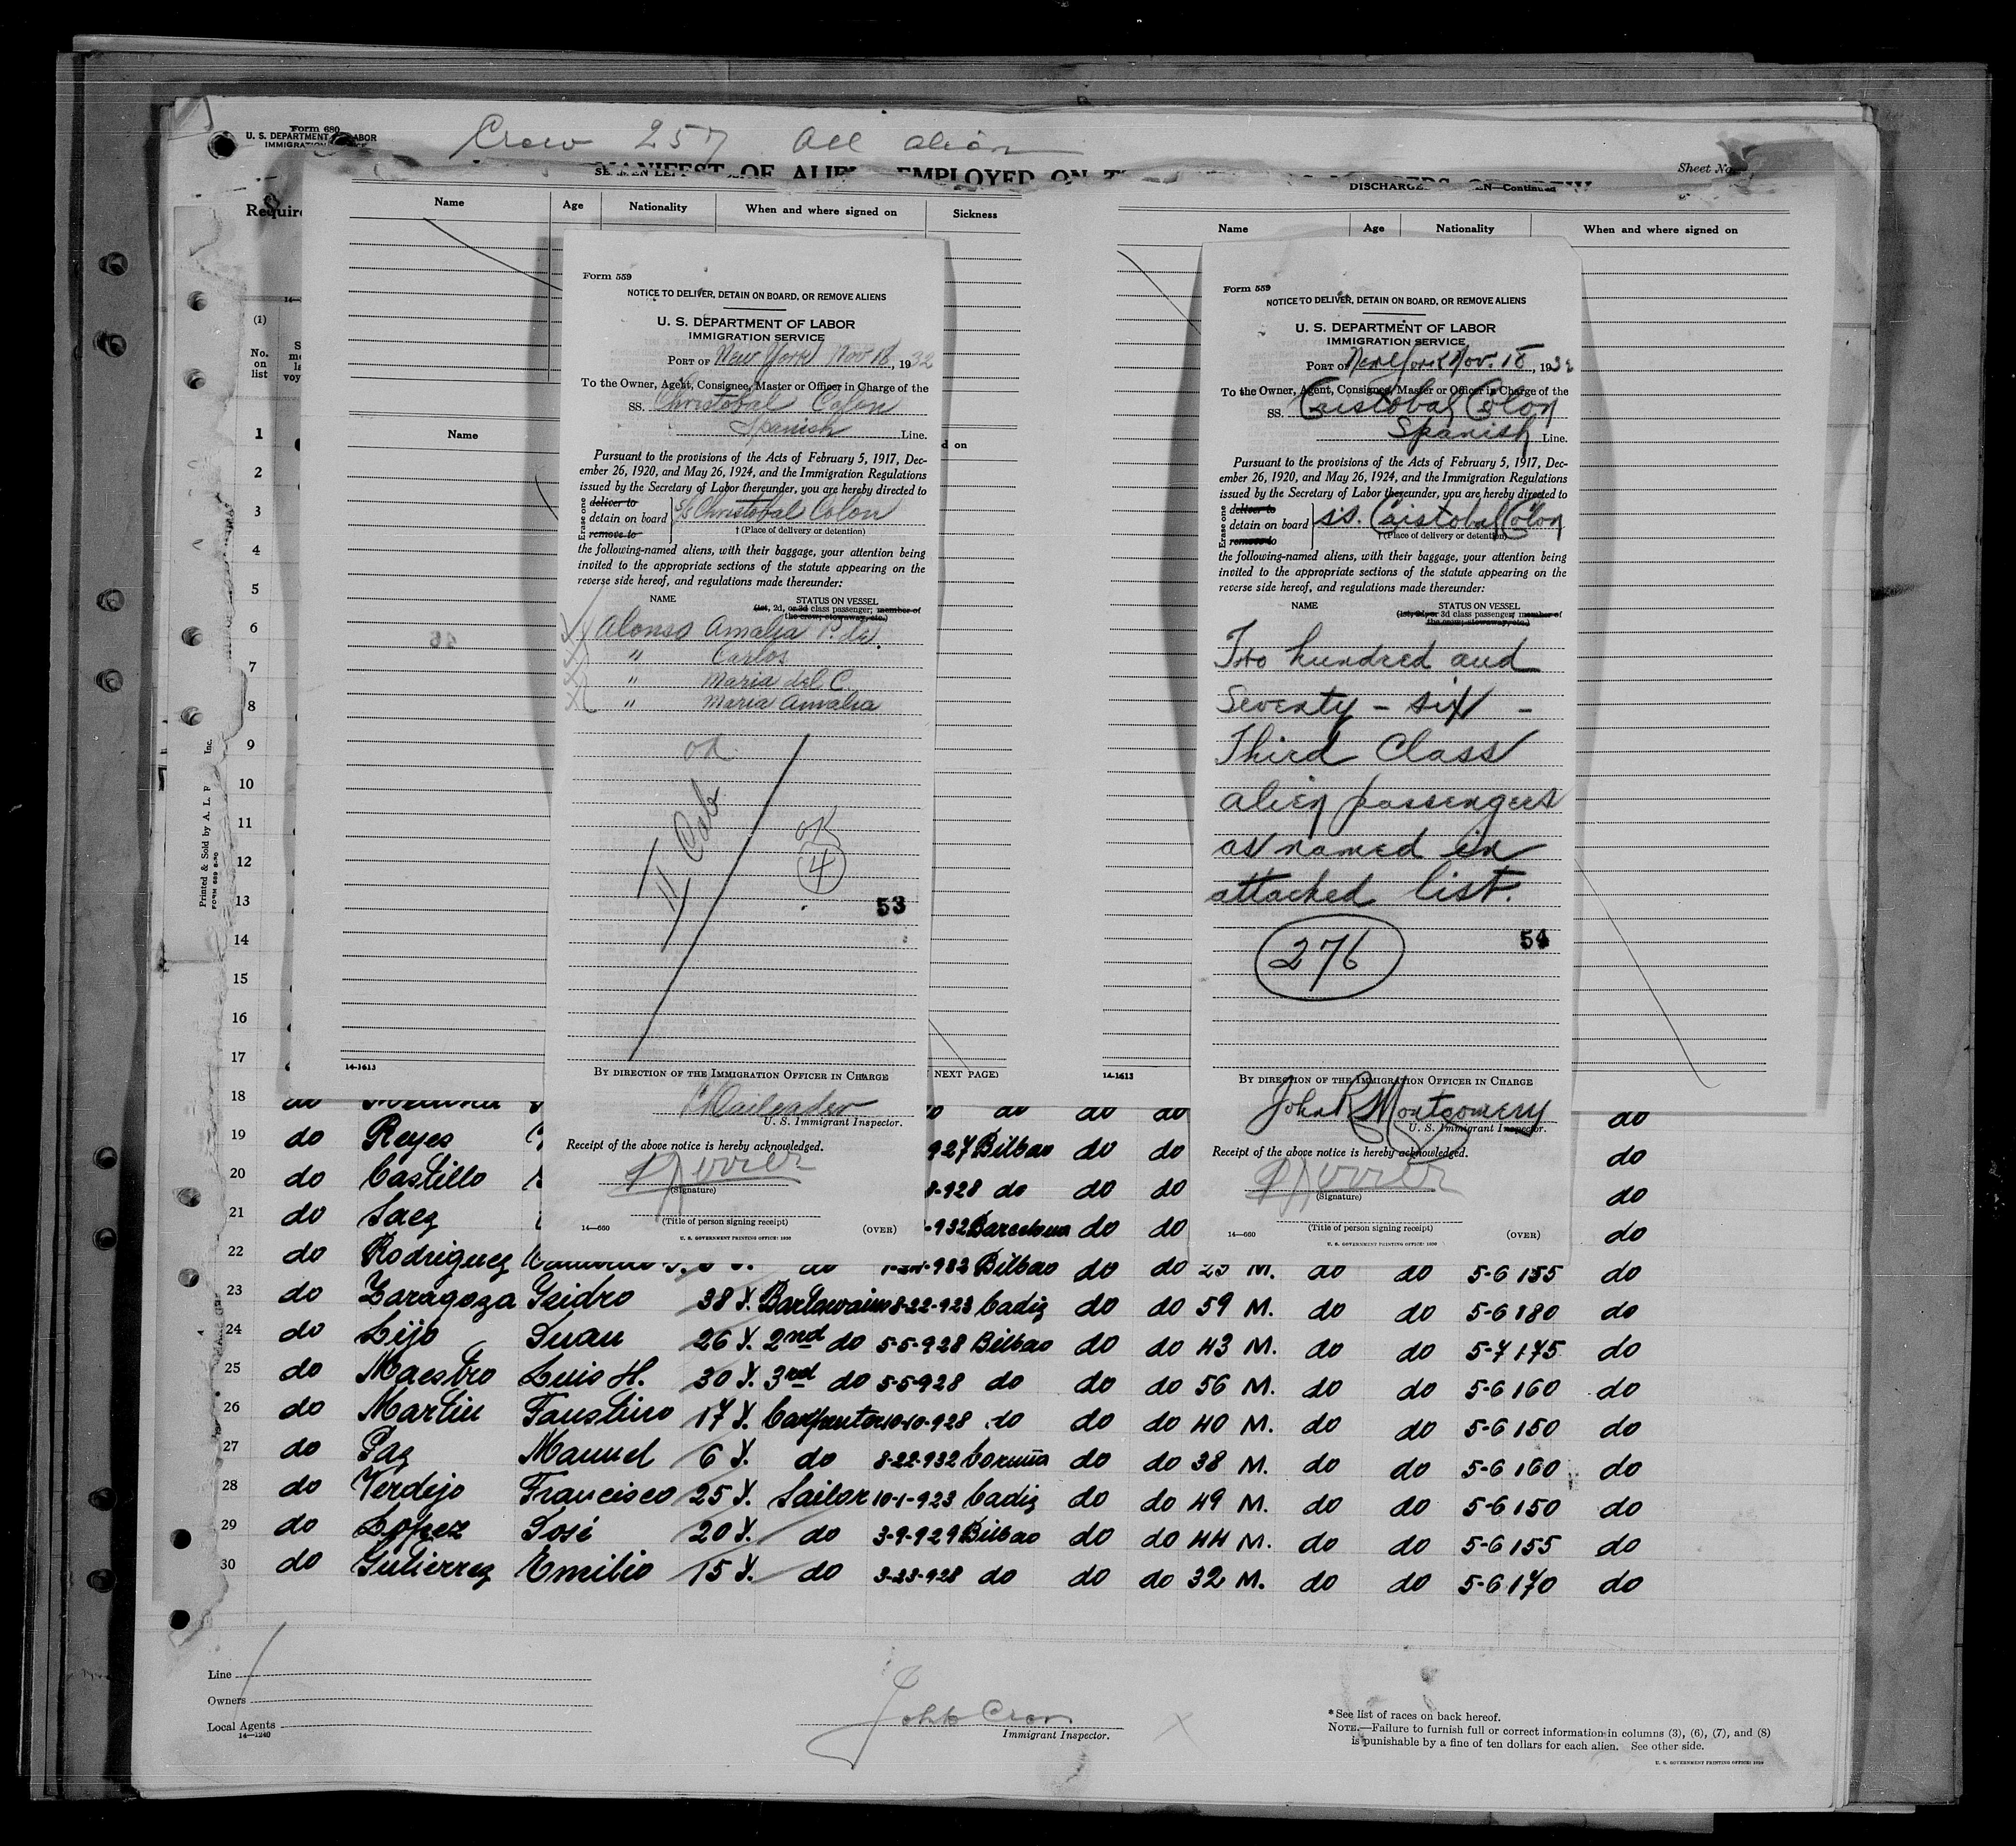 Form 680
U. S. DEPARTMENT LABOR
IMMIGRATION
Crew 257 All alien
MANIFEST OF ALIE EMPLOYED ON
Sheet No.
Require
DISCHARG EN—Continued
Name Age Nationality When and where signed on Sickness
Name Age Nationality When and where signed on
(1)
No. on list
Name
Printed & Sold by A. L. F Inc.
Form 559
NOTICE TO DELIVER, DETAIN ON BOARD, OR REMOVE ALIENS
U. S. DEPARTMENT OF LABOR
IMMIGRATION SERVICE
PORT OF New York Nov 18, 1932
To the Owner, Agent, Consignee, Master or Officer in Charge of the
SS. Christobal Colon
Spanish Line.
Pursuant to the provisions of the Acts of February 5, 1917, Dec-
ember 26, 1920, and May 26, 1924, and the Immigration Regulations
issued by the Secretary of Labor thereunder, you are hereby directed to
Erase one
deliver to
detain on board SS Christobal Colon
remove to
† (Place of delivery or detention)
the following-named aliens, with their baggage, your attention being
invited to the appropriate sections of the statute appearing on the
reverse side hereof, and regulations made thereunder:
NAME STATUS ON VESSEL
(1st, 2d, or 3d class passenger; member of
the crew; stowaway, etc.)
Alonso Amalia P. de
" Carlos
" Maria del C.
" Maria Amalia
OK
II Cab
OK
4
53
BY DIRECTION OF THE IMMIGRATION OFFICER IN CHARGE
U. S. Immigrant Inspector.
Receipt of the above notice is hereby acknowledged.
(Signature)
(Title of person signing receipt)
14—660 (OVER)
U. S. GOVERNMENT PRINTING OFFICE: 1930
Form 559
NOTICE TO DELIVER, DETAIN ON BOARD, OR REMOVE ALIENS
U. S. DEPARTMENT OF LABOR
IMMIGRATION SERVICE
PORT OF New York Nov. 18, 1932
To the Owner, Agent, Consignee, Master or Officer in Charge of the
SS. Cristobal Colon
Spanish Line.
Pursuant to the provisions of the Acts of February 5, 1917, Dec-
ember 26, 1920, and May 26, 1924, and the Immigration Regulations
issued by the Secretary of Labor thereunder, you are hereby directed to
Erase one
deliver to
detain on board s.s. Cristobal Colon
remove to
† (Place of delivery or detention)
the following-named aliens, with their baggage, your attention being
invited to the appropriate sections of the statute appearing on the
reverse side hereof, and regulations made thereunder:
NAME STATUS ON VESSEL
(1st, 2d, or 3d class passenger; member of
the crew; stowaway, etc.)
Two hundred and
Seventy - six -
Third Class
alien passengers
as named in
attached list.
276
54
BY DIRECTION OF THE IMMIGRATION OFFICER IN CHARGE
John R Montgomery
U. S. Immigrant Inspector.
Receipt of the above notice is hereby acknowledged.
(Signature)
(Title of person signing receipt)
14—660 (OVER)
U. S. GOVERNMENT PRINTING OFFICE: 1930
14-1613
NEXT PAGE)
14-1613
1
2
3
4
5
6
7
8
9
10
11
12
13
14
15
16
17
18 do do do do do
19 do Reyes 927 Bilbao do do do
20 do Castillo 8-928 do do do do
21 do Saez -932 Barcelona do do do
22 do Rodriguez do 932 Bilbao do do 25 M. do do 5-6 155 do
23 do Zaragoza Isidro 38 Y. 8-22-923 Cadiz do do 59 M. do do 5-6 180 do
24 do Lijo Juan 26 Y. 2nd do 5-5-928 Bilbao do do 43 M. do do 5-7 175 do
25 do Maestro Luis H. 30 Y. 3rd do 5-5-928 do do do 56 M. do do 5-6 160 do
26 do Martin Faustino 17 Y. Carpenter 10-10-928 do do do 40 M. do do 5-6 150 do
27 do Paz Manuel 6 Y. do 8-22-932 Coruña do do 38 M. do do 5-6 160 do
28 do Verdejo Francisco 25 Y. Sailor 10-1-923 Cadiz do do 49 M. do do 5-6 150 do
29 do Lopez José 20 Y. do 3-9-929 Bilbao do do 44 M. do do 5-6 155 do
30 do Gutierrez Emilio 15 Y. do 3-23-928 do do do 32 M. do do 5-6 170 do
Line
Owners
Local Agents
14—1240
Immigrant Inspector.
* See list of races on back hereof.
NOTE.—Failure to furnish full or correct information in columns (3), (6), (7), and (8)
is punishable by a fine of ten dollars for each alien. See other side.
U. S. GOVERNMENT PRINTING OFFICE: 1930